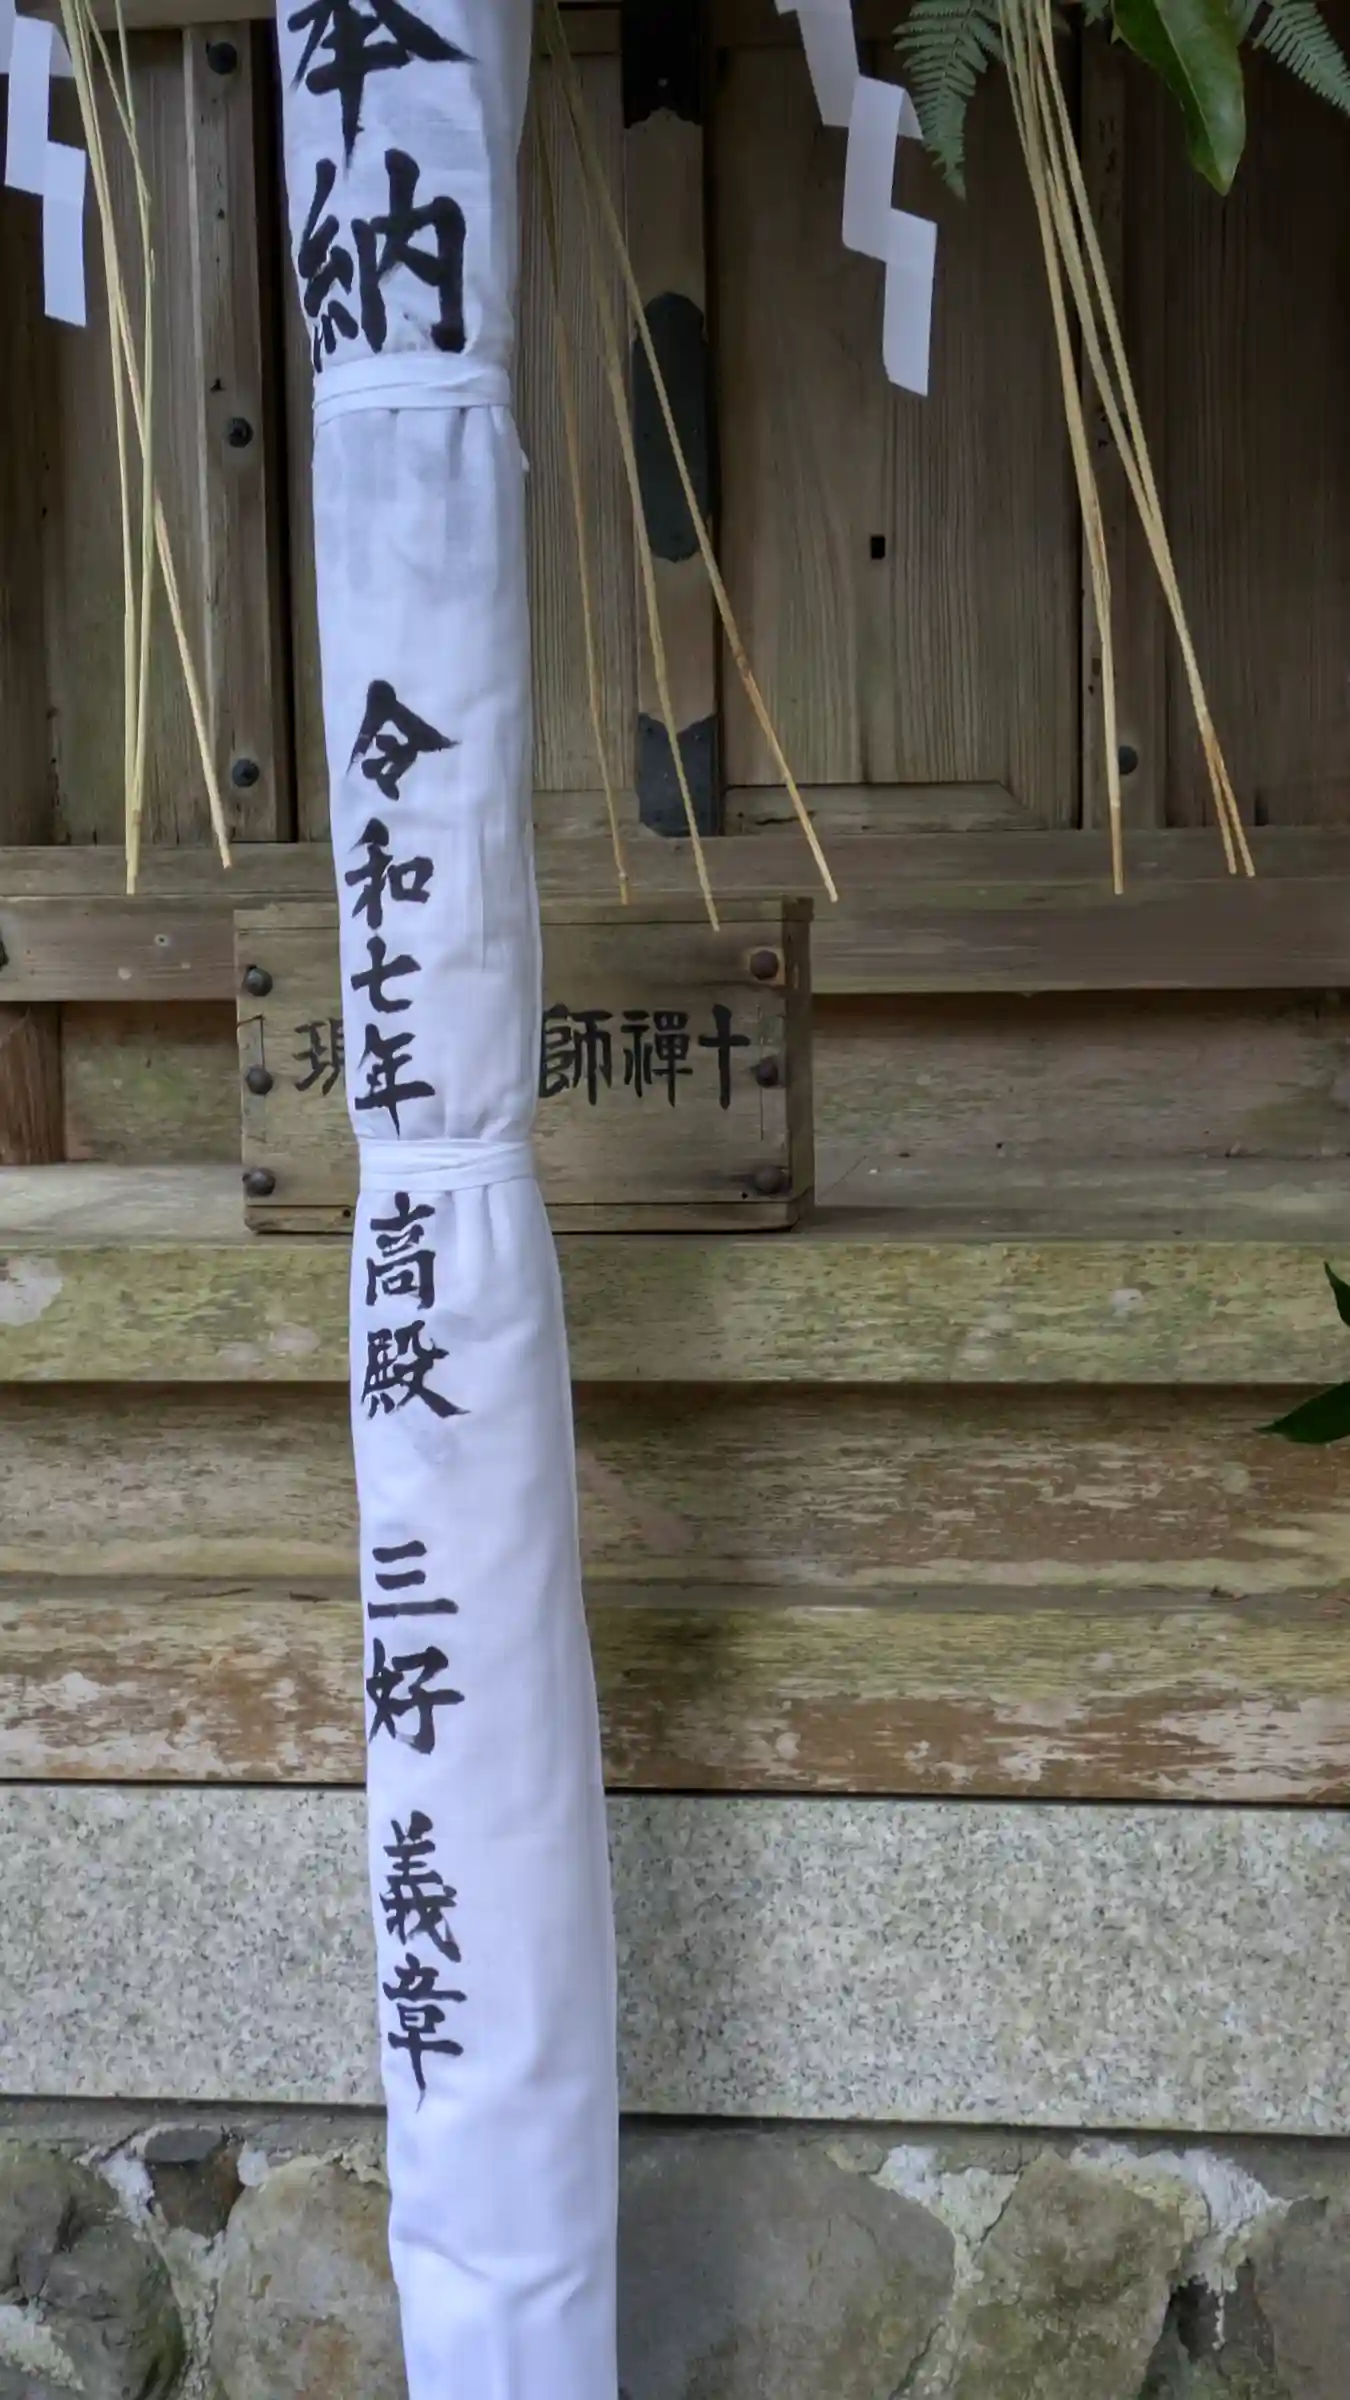 奉納
令和七年
高殿
三好
義章
十禪師
現